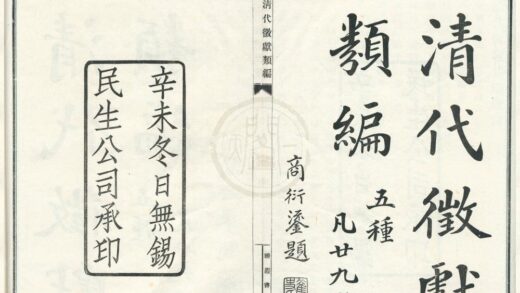 清代徵獻
類編
五種
凡廿九
商衍鎏題
清代徵獻類編
辛未冬日無錫
民生公司承印